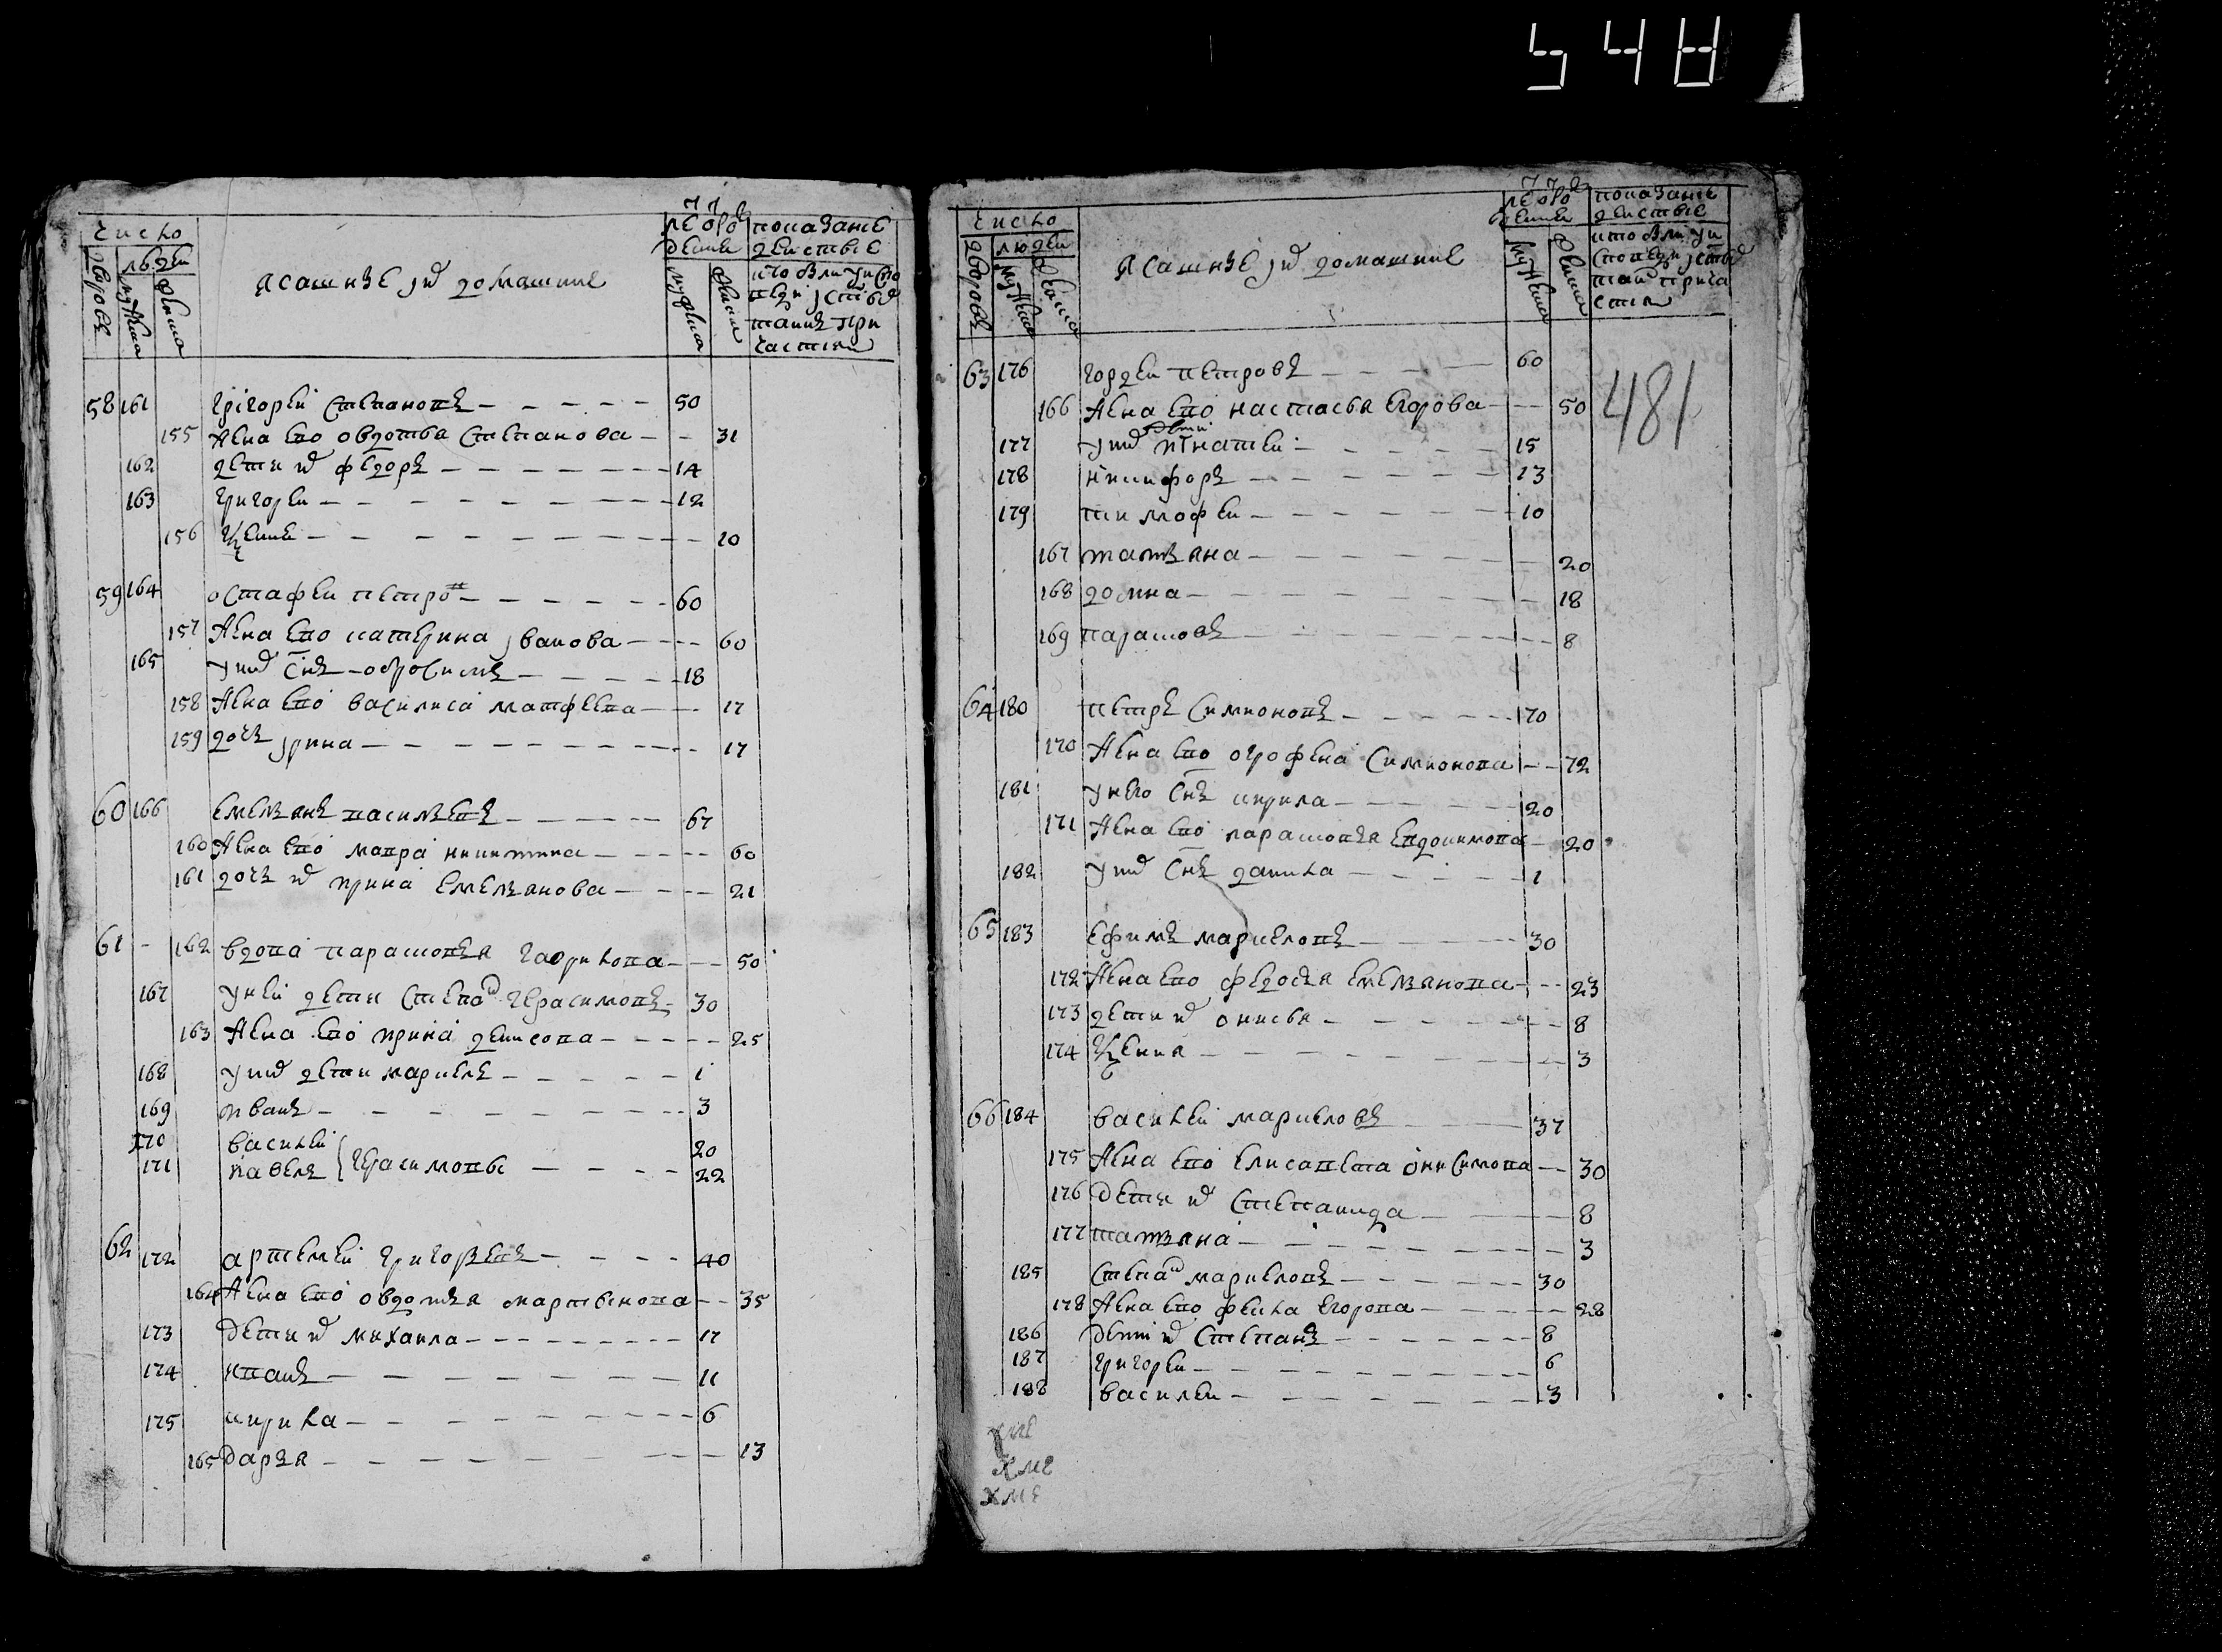 548
число
людеи
дворовъ
мужеска
женска
Ясашнꙑе ихъ домашние
лѣ
мужеска
женска
показание
58 161 Григореи Степановъ 50
155 Жена ево Овдотья Степанова 31
162 дети их Федоръ 14
163 Григореи 12
156 10
59 164 Остафеи Петровъ 60
157 Жена ево Катерина Иванова 60
165 У них снъ 18
158 Жена ево Василиса Матфеева 17
159 дочь Ирина 17
60 166 Емельянъ Васильевъ 67
160 Жена ево Мавра Никитина 60
161 дочь их Ирина Емельянова 21
61 - 162 вдова Парасковья Гаврилова 50
167 У неи дети Степан Герасимовъ 30
163 Жена ево Ирина Денисова 25
168 У них дети Маркелъ 1
169 Иванъ 3
170 Василеи 20
171 Павелъ Герасимовы 22
62 172 Артемеи Григорьевъ 40
164 Жена ево Овдотья Мартынова 35
173 Дети их Михаила 17
174 Иванъ 11
175 Кирила 6
165 Дарья 13
число
людеи
дворовъ
мужеска
женска
Ясашнꙑе ихъ домашние
мужеска
женска
показание
481
63 176 Гордеи Петровъ 60
166 Жена ево Настасья Егорова 50
дети
177 У них Игнатеи 15
178 Никифоръ 13
179 Тимофеи 10
167 Татьяна 20
168 20 18
169 Парасковья 8
64 180 Петръ Симионовъ 70
170 Жена ево Огрофена Симионова 72
181 У него снъ Кирила 20
171 Жена ево Парасковья Евдокимова 20
182 У них снъ Данила 1
65 183 Ефимъ Маркеловъ 30
172 Жена ево Федосья Емельянова 23
173 дети их Онисья 8
174 3
66 184 Василеи Маркеловъ 37
175 Жена ево Елисавета Онисимова 30
176 Дети их Степанида 8
177 Татьяна 3
185 Степан Маркеловъ 30
178 Жена ево Фекла Егорова 28
186 Дети их Степанъ 8
187 Григореи 6
188 Василеи 3